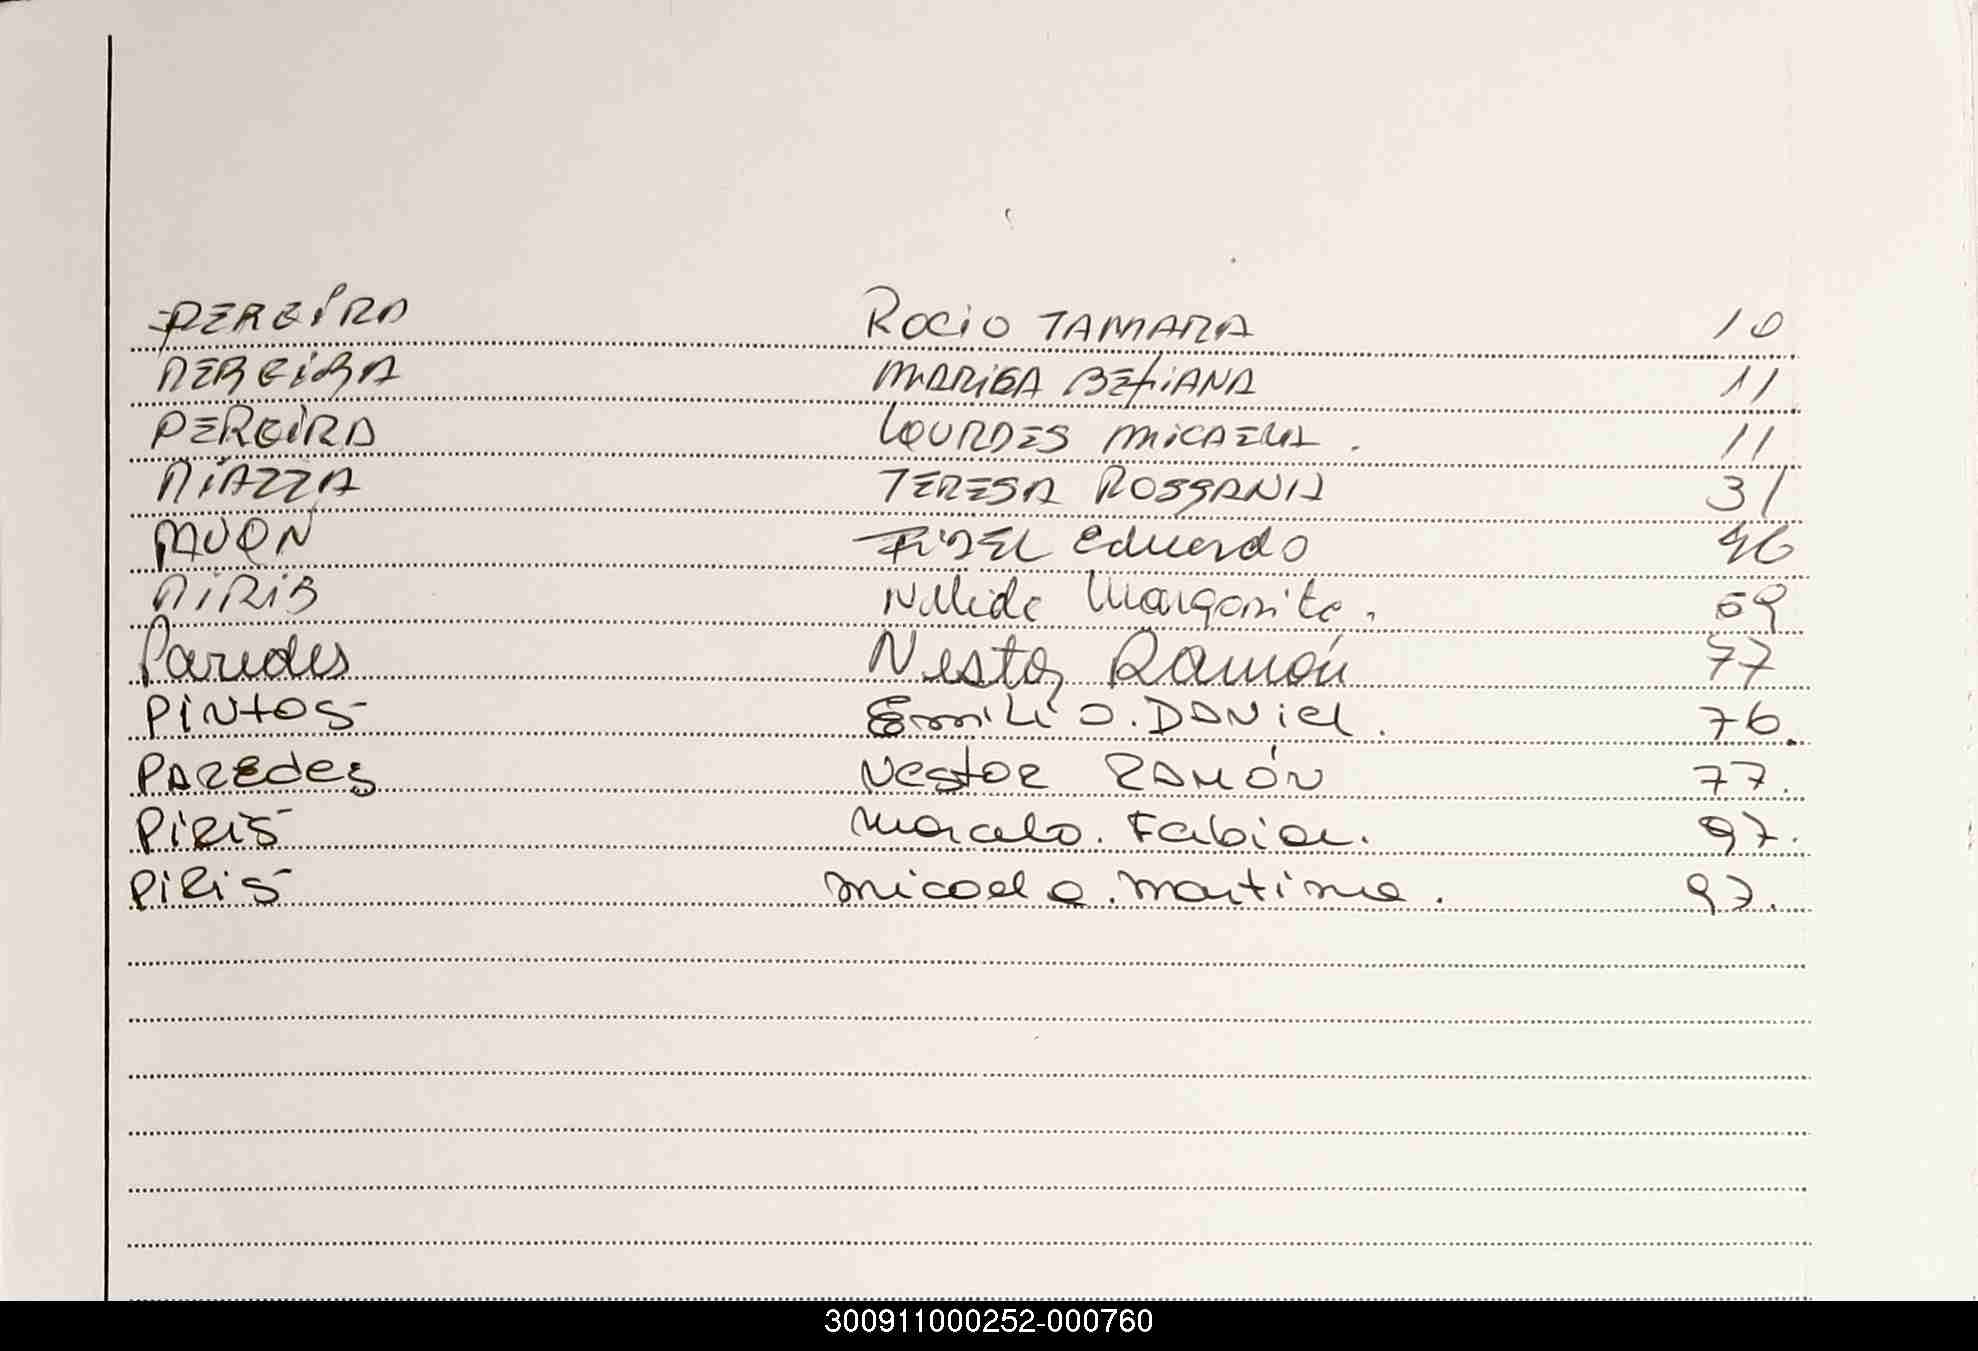 PEREIRA ROCIO TAMARA 10
PEREIRA MARISA BETIANA 11
PEREIRA LOURDES MICAELA . 11
PIAZZA TERESA ROSSANA 31
PAVON FIDEL Eduardo 46
PIRIS Nélida Margarita . 69
Paredes Nestor Ramón 77
PINTOS Emilio . DANiel . 76.
PAREdes Nestor RAMÓN 77.
PIRIS Marcelo . Fabian . 97.
PIRIS micaela . martina . 97.
300911000252-000760